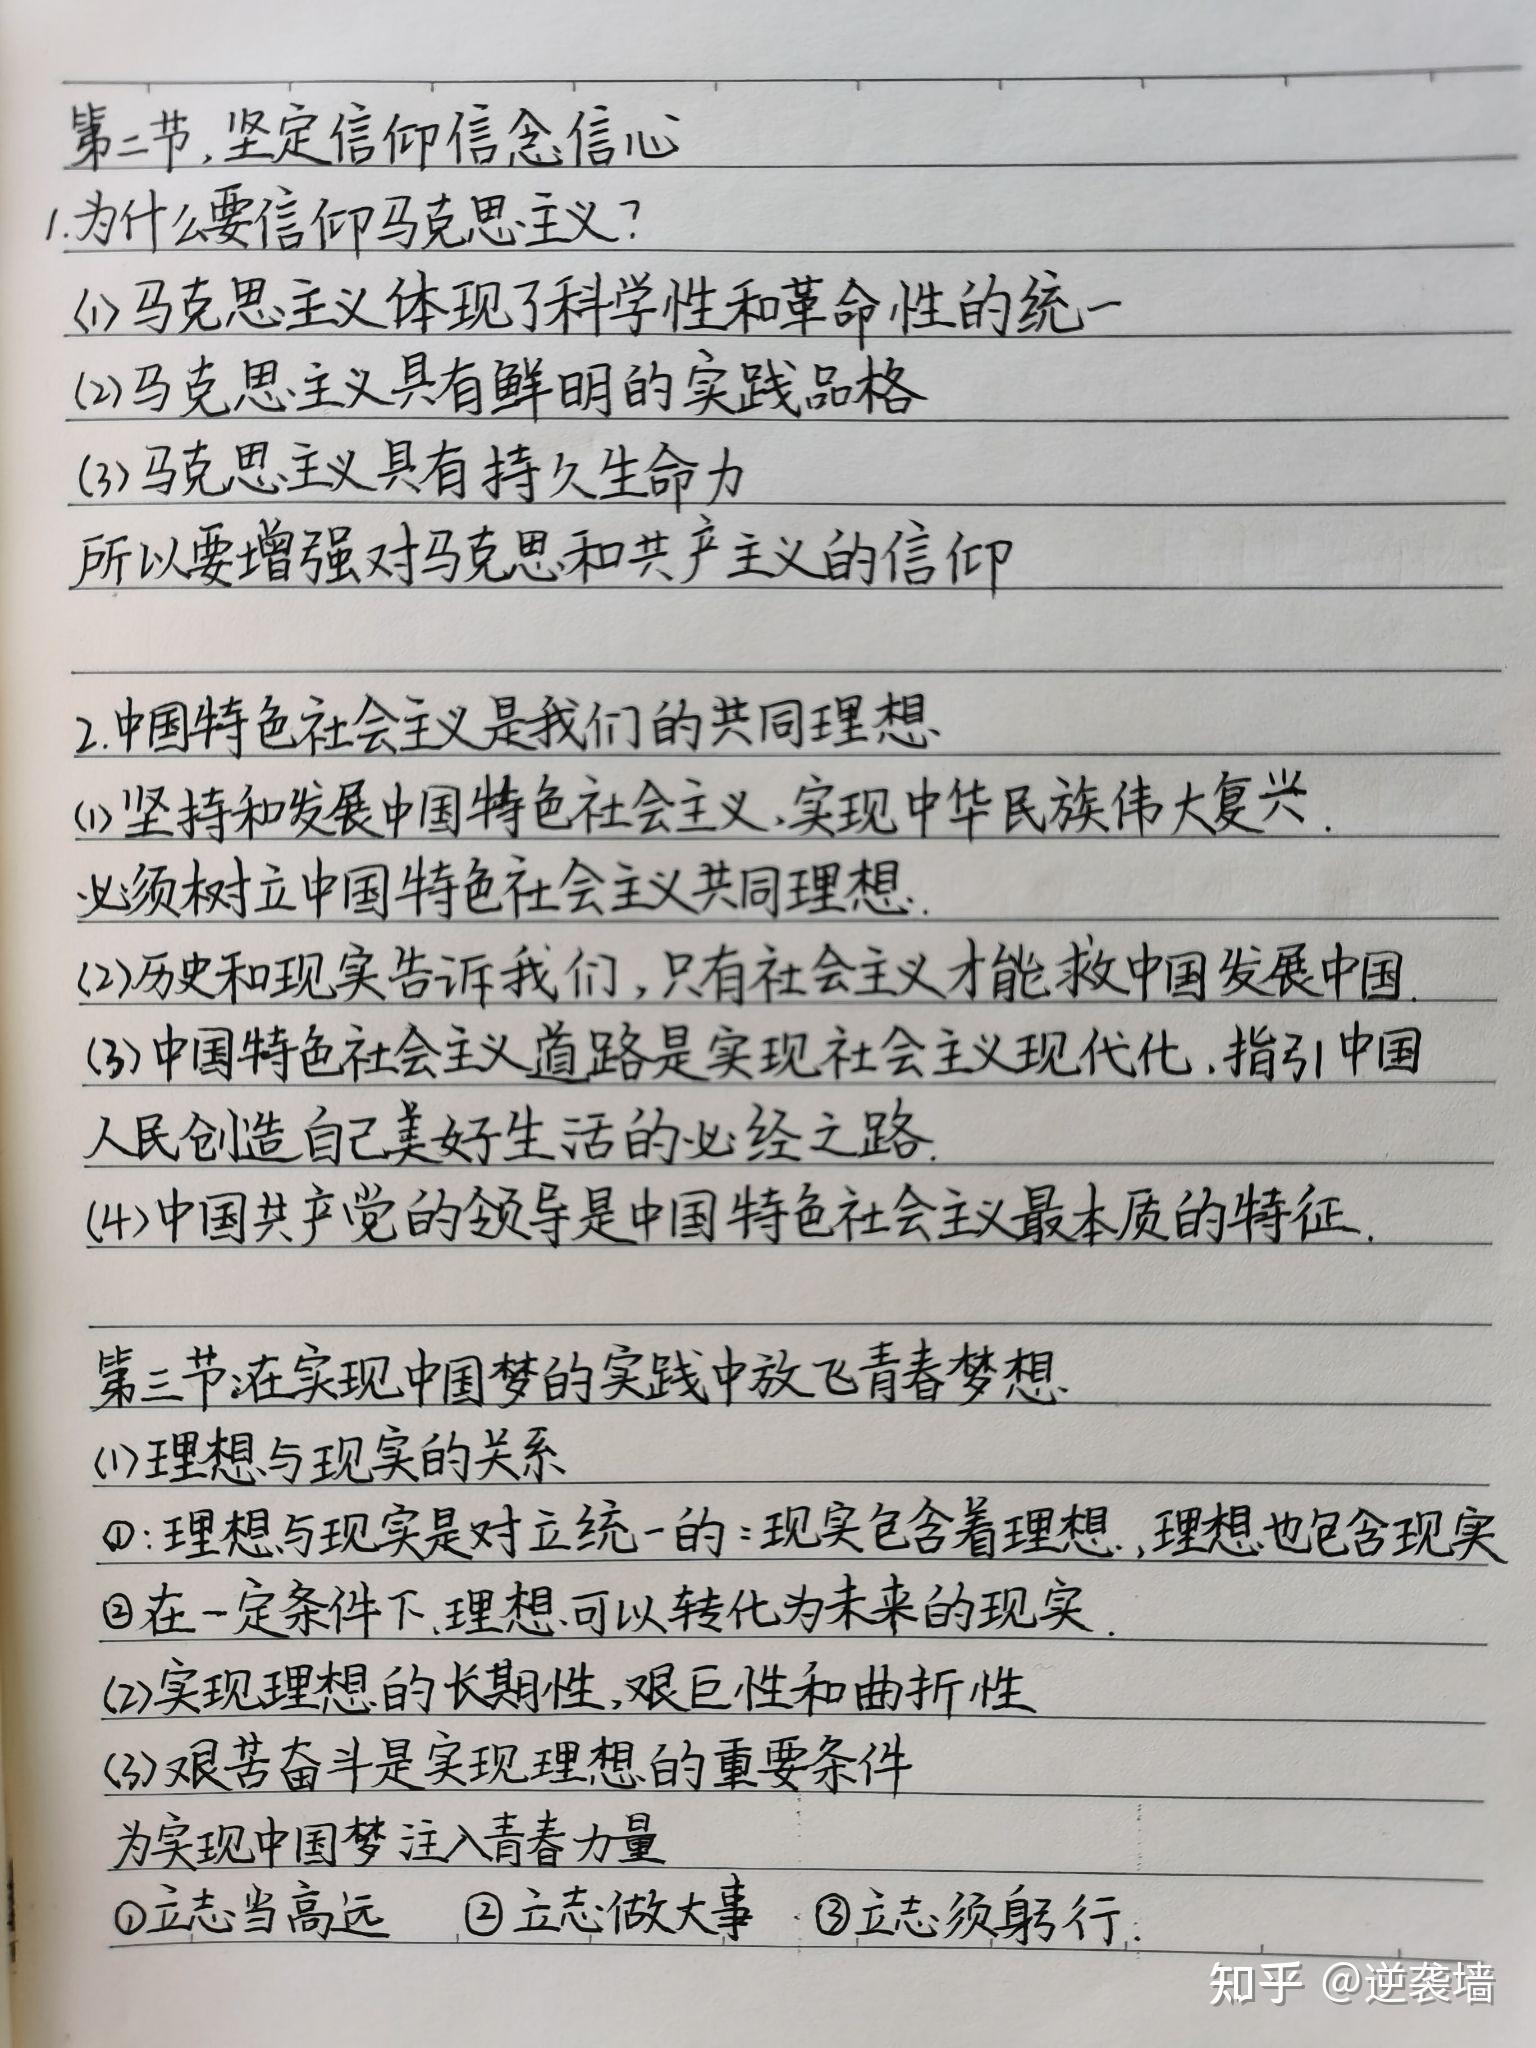 第二节、坚定信仰信念信心
1.为什么要信仰马克思主义?
(1)马克思主义体现了科学性和革命性的统一
(2)马克思主义具有鲜明的实践品格
(3)马克思主义具有持久生命力
所以要增强对马克思和共产主义的信仰
2.中国特色社会主义是我们的共同理想
(1)坚持和发展中国特色社会主义、实现中华民族伟大复兴.
必须树立中国特色社会主义共同理想.
(2)历史和现实告诉我们,只有社会主义才能救中国发展中国.
(3)中国特色社会主义道路是实现社会主义现代化、指引中国
人民创造自己美好生活的必经之路.
(4)中国共产党的领导是中国特色社会主义最本质的特征.
第三节:在实现中国梦的实践中放飞青春梦想
(1)理想与现实的关系
①:理想与现实是对立统一的:现实包含着理想,理想也包含现实
②在一定条件下、理想可以转化为未来的现实.
(2)实现理想的长期性、艰巨性和曲折性
(3)艰苦奋斗是实现理想的重要条件
为实现中国梦注入青春力量
①立志当高远 ②立志做大事 ③立志须躬行.
知乎 @逆袭墙